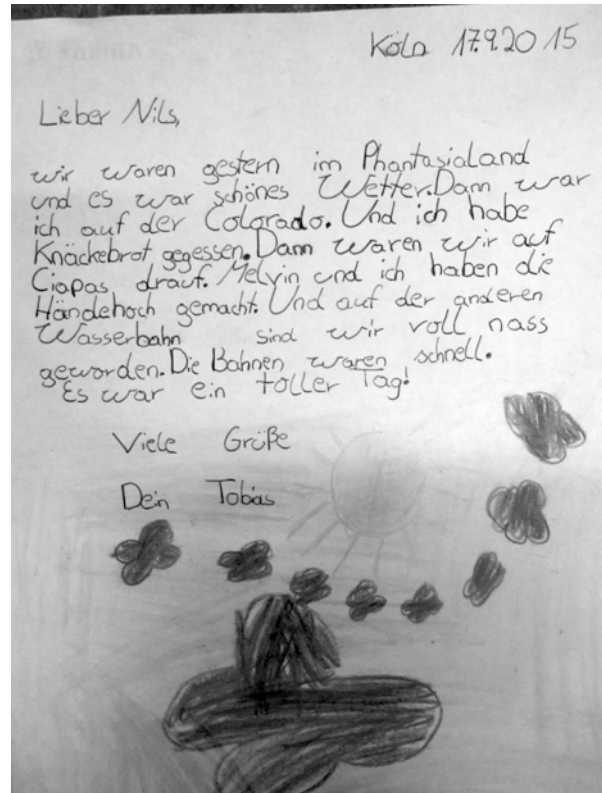 Köln 17.9.2015
Lieber Nils,
wir waren gestern im Phantasialand
und es war schönes Wetter. Dann war
ich auf der Colorado. Und ich habe
Knäckebrot gegessen. Dann waren wir auf
Ciapas drauf. Melvin und ich haben die
Händehoch gemacht. Und auf der anderen
Wasserbahn sind wir voll nass
geworden. Die Bahnen waren schnell.
Es war ein toller Tag!
Viele Grüße
Dein Tobias